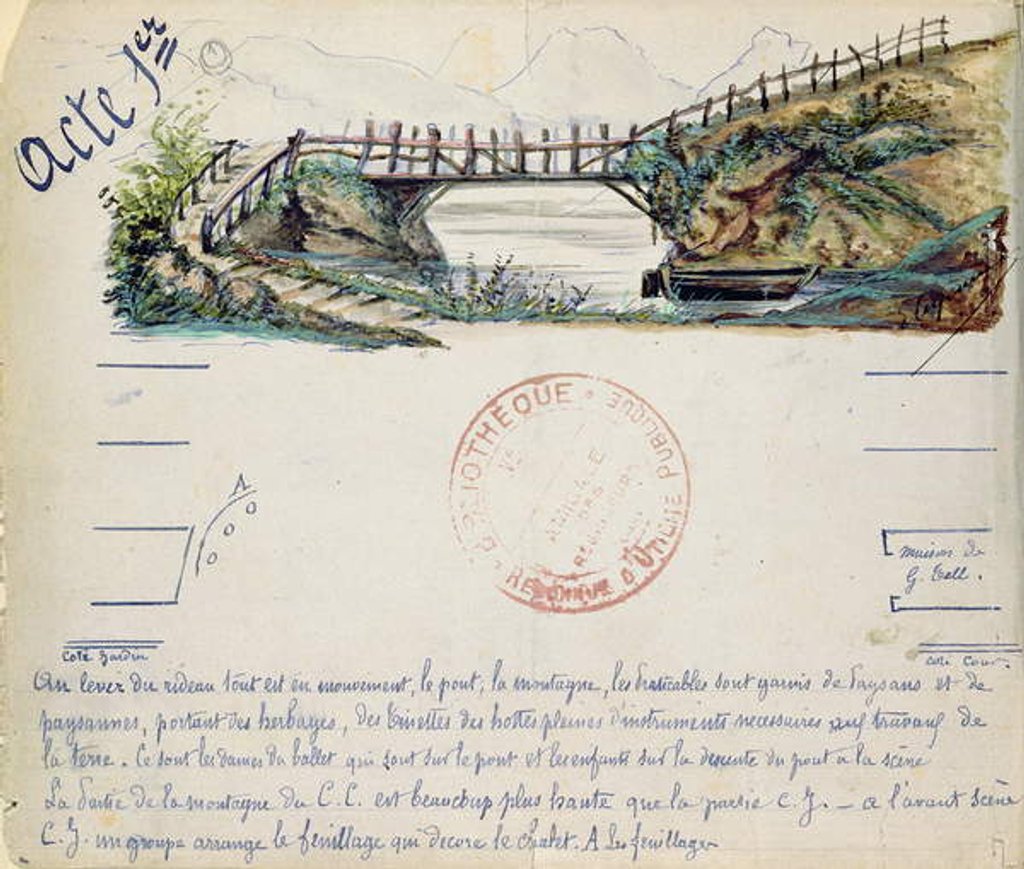 Acte 1er
A
BIBLIOTHÈQUE
PUBLIQUE
D'UTILITÉ
A
maison de
G. Tell.
Coté Jardin
Coté Cour.
Au lever du rideau tout est en mouvement, le pont, la montagne, les praticables sont garnis de paysans et de
paysannes, portant des herbages, des binettes des hottes pleines d'instruments necessaires aux travaux de
la terre. Ce sont les dames du ballet qui sont sur le pont et les enfants sur la descente du pont a la scène
La Partie de la montagne du C.C. est beaucoup plus haute que la partie C.J. – a l'avant scène
C.J. un groupe arrange le feuillage qui decore le chalet. A les feuillages